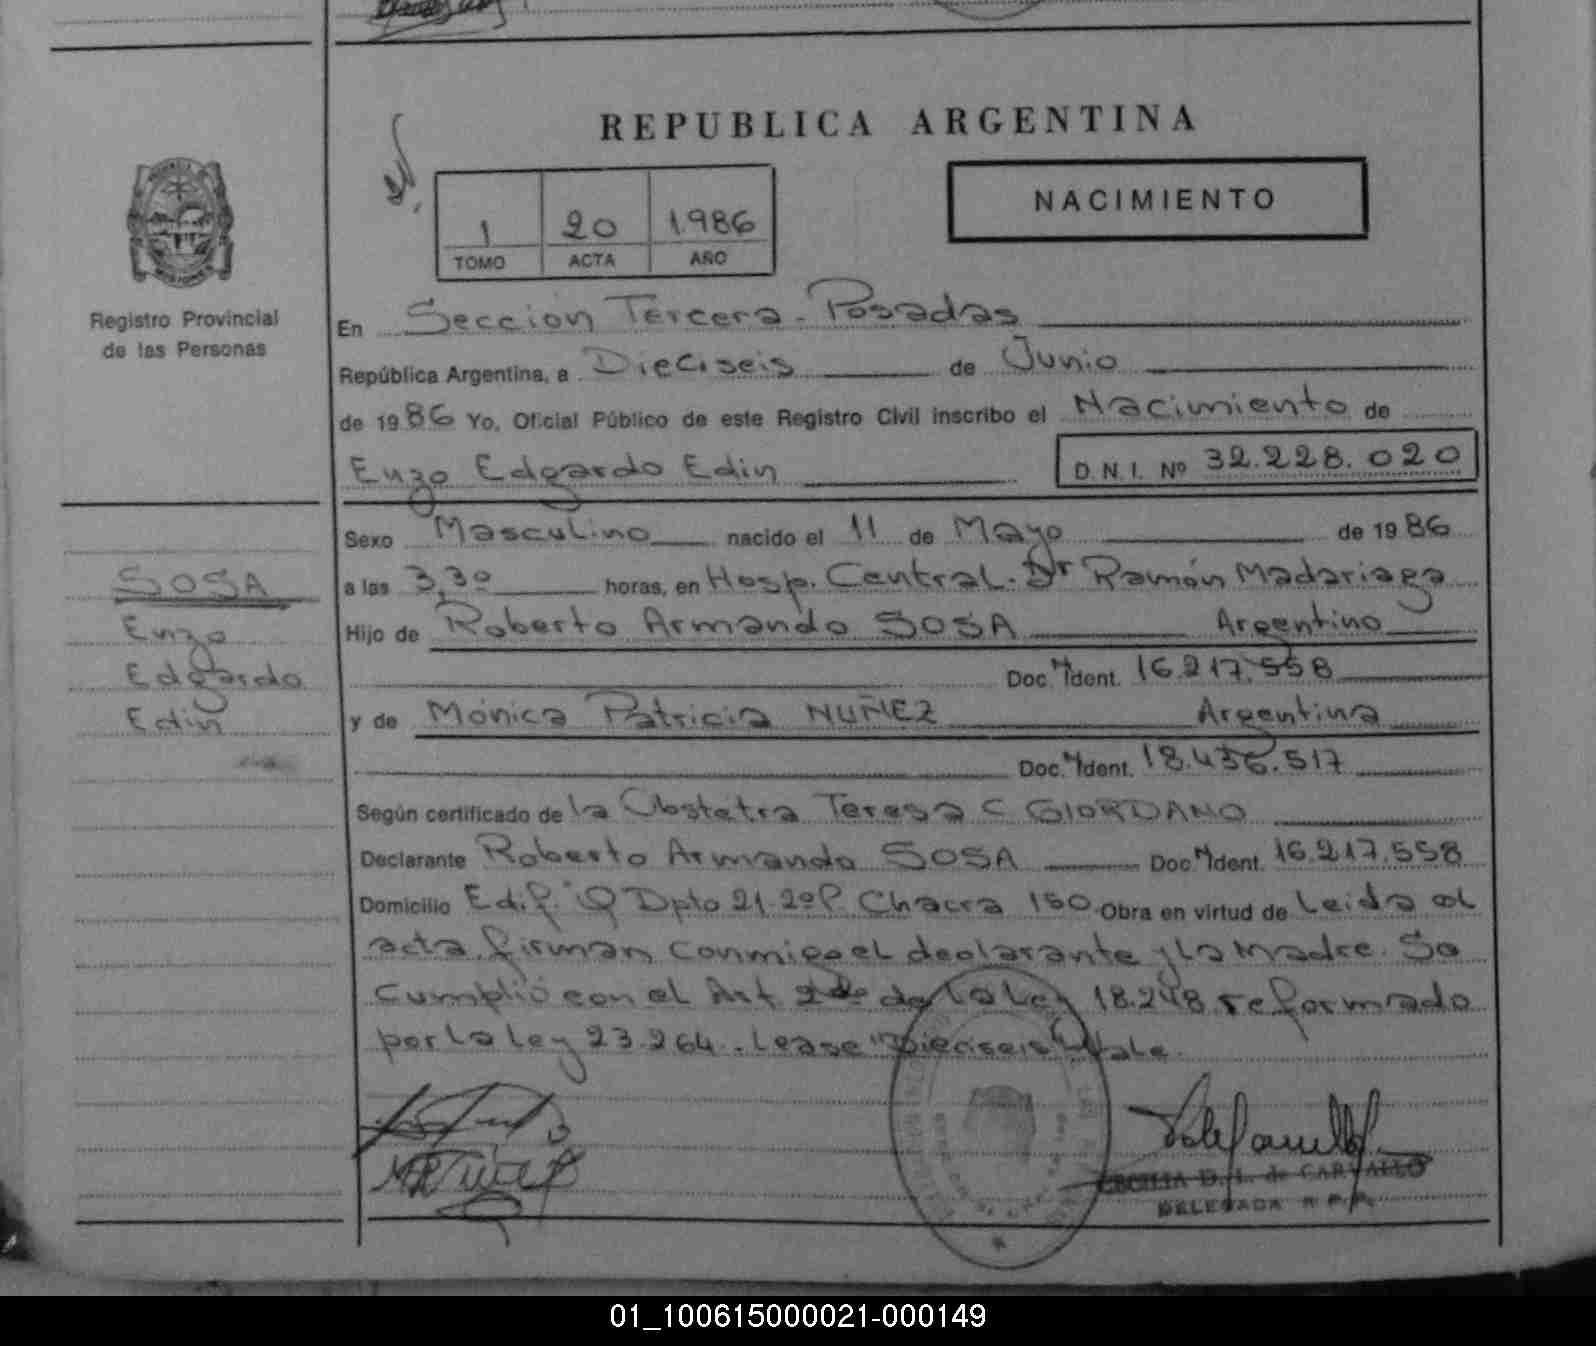 REPUBLICA ARGENTINA
NACIMIENTO
1 20 1986
TOMO ACTA AÑO
MISIONES
Registro Provincial
de las Personas
En Seccion Tercera - Posadas
República Argentina, a Dieciseis de Junio
de 1986 Yo, Oficial Público de este Registro Civil inscribo el Nacimiento de
Enzo Edgardo Edin
D. N. I. Nº 32.228.020
SOSA
Enzo
Edgardo
Edin
Sexo Masculino nacido el 11 de Mayo de 1986
a las 3,30 horas, en Hosp. Central. Dr Ramón Madariaga
Hijo de Roberto Armando SOSA Argentino
Doc. Ident. 16.217.558
y de Mónica Patricia NUÑEZ Argentina
Doc. Ident. 18.436.517
Según certificado de la Obstetra Teresa C GIORDANO
Declarante Roberto Armando SOSA Doc. Ident. 16.217.558
Domicilio Edif. Q Dpto 21. 2º P. Chacra 150 Obra en virtud de Leida el
acta, firman conmigo el declarante y la Madre. Se
cumplió con el Art. 2do de la Ley 18.248 reformado
por la ley 23.264. Lease "Dieciseis" Vale.
CECILIA D. L. de CARVALLO
DELEGADA R.P.P.
01_100615000021-000149